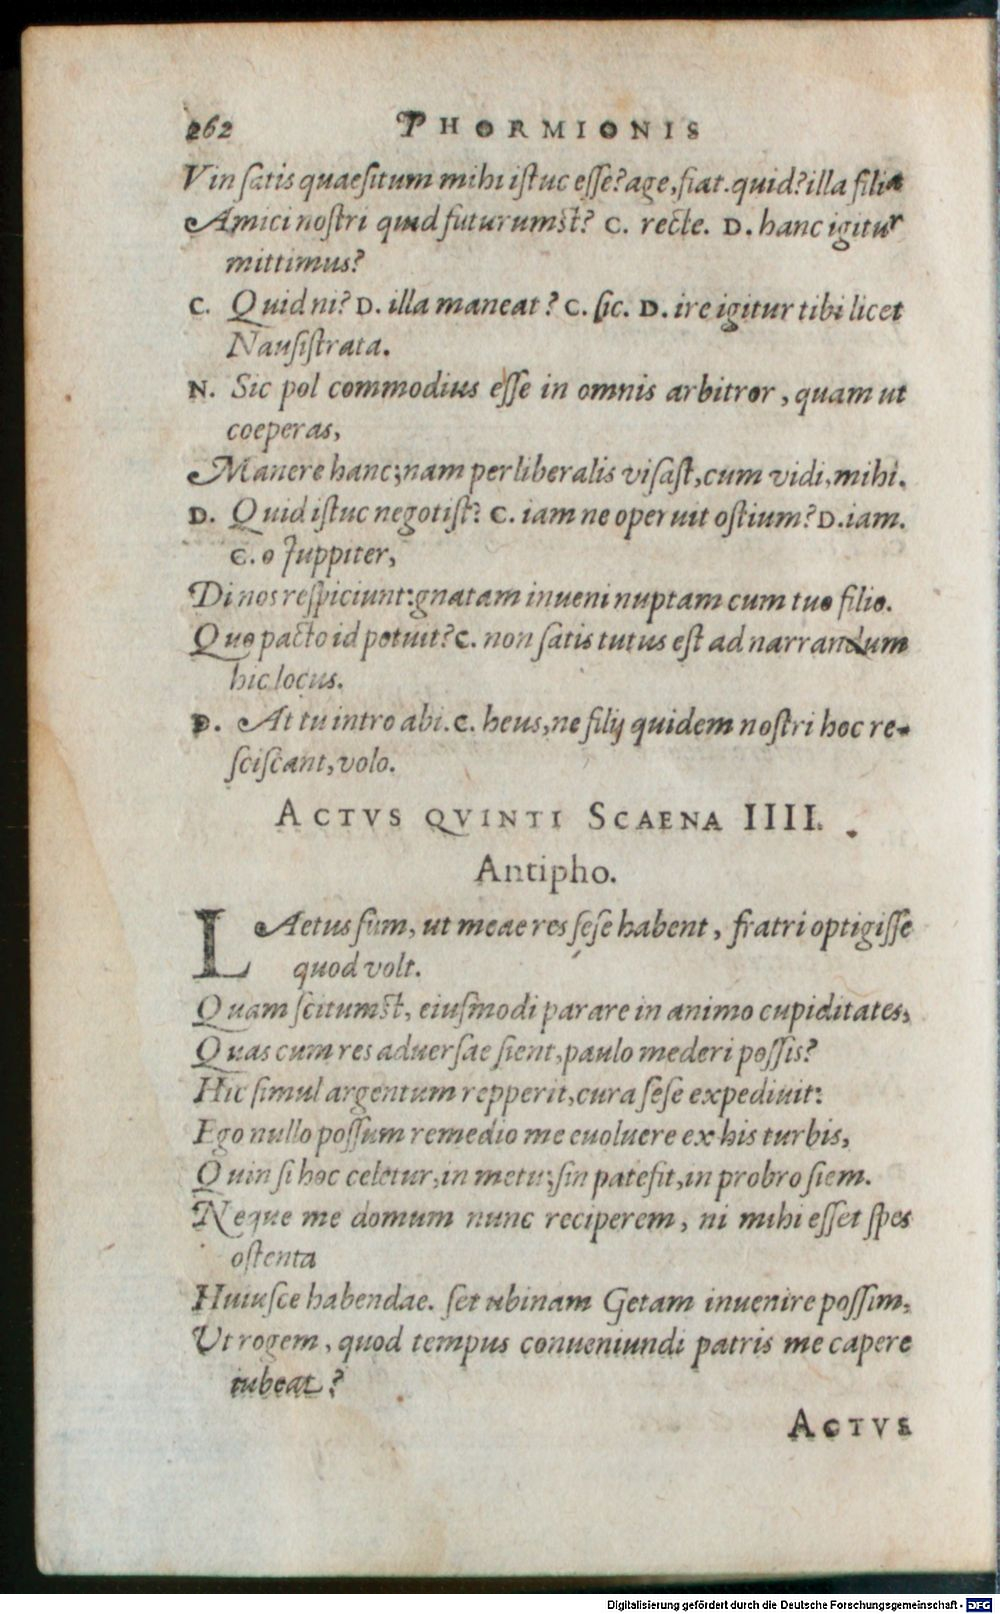 262 PHORMIONIS
Vin satis quaesitum mihi istuc esse? age, fiat. quid? illa filia
Amici nostri quid futurumst? C. recte. D. hanc igitur
mittimus?
C. Quid ni? D. illa maneat? C. sic. D. ire igitur tibi licet
Nausistrata.
N. Sic pol commodius esse in omnis arbitror, quam ut
coeperas,
Manere hanc; nam perliberalis visast, cum vidi, mihi.
D. Quid istuc negotist? C. iam ne operuit ostium? D. iam.
C. o Juppiter,
Di nos respiciunt: gnatam inueni nuptam cum tuo filio.
Quo pacto id potuit? C. non satis tutus est ad narrandum
hic locus.
D. At tu intro abi. C. heus, ne filij quidem nostri hoc re-
sciscant, volo.
ACTVS QVINTI SCAENA IIII.
Antipho.
LAetus sum, ut meae res sese habent, fratri optigisse
quod volt.
Quam scitumst, eiusmodi parare in animo cupiditates,
Quas cum res aduersae sient, paulo mederi possis?
Hic simul argentum repperit, cura sese expediuit:
Ego nullo possum remedio me euoluere ex his turbis,
Quin si hoc celetur, in metu; sin patefit, in probro siem.
Neque me domum nunc reciperem, ni mihi esset spes
ostenta
Huiusce habendae. set ubinam Getam inuenire possim,
Ut rogem, quod tempus conueniundi patris me capere
iubeat?
ACTVS
Digitalisierung gefördert durch die Deutsche Forschungsgemeinschaft - DFG